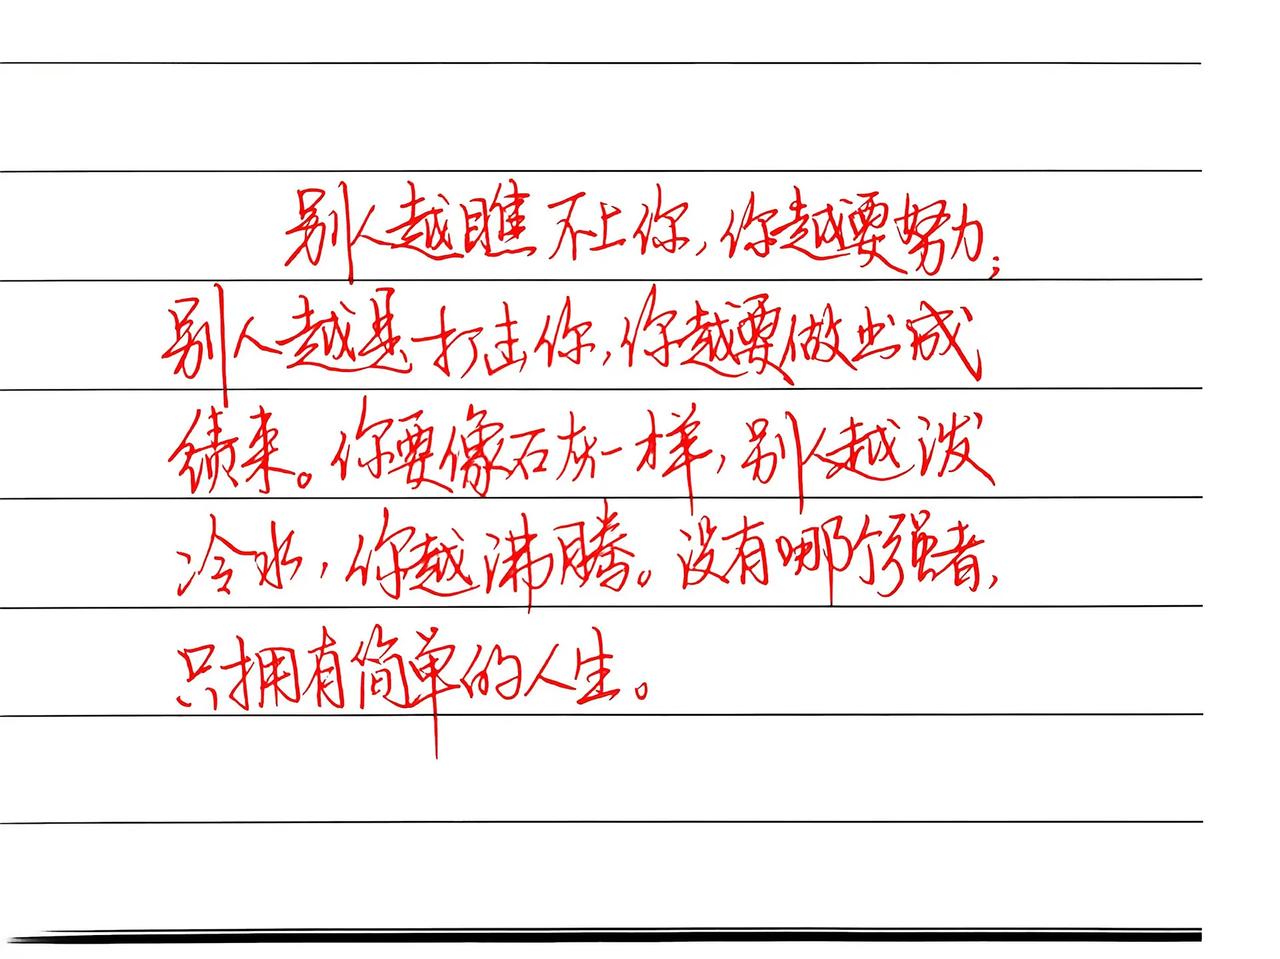 别人越瞧不上你,你越要努力;
别人越是打击你,你越要做出成
绩来。你要像石灰一样,别人越泼
冷水,你越沸腾。没有哪个强者,
只拥有简单的人生。